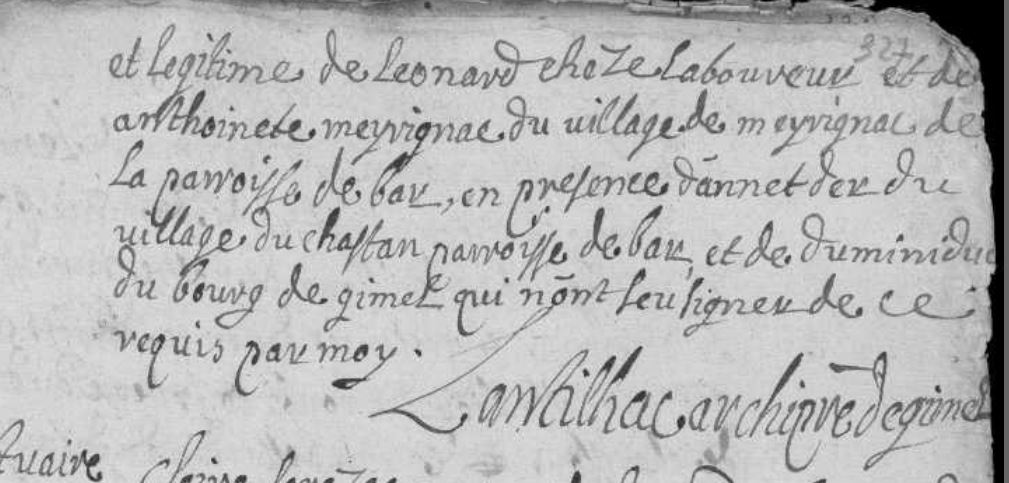 327
et legitime de leonard choze laboureur et de
anthoinete meyrignac du village de meyrignac de
la parroisse de bar, en presence dannet der du
village du chastan parroisse de bar et de duminidu
du bourg de gimel qui nont seu signer de ce
requis par moy.
Lantilhac archipre de gimel